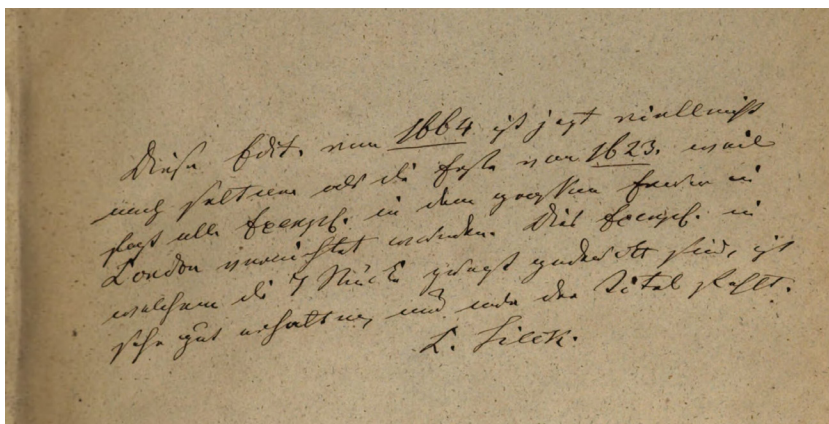 Diese Edit. von 1664 ist jetzt vielleicht
noch seltener als die Erste von 1623. weil
fast alle Exempl. in dem großen Feuer in
London vernichtet wurden. Dies Exempl. in
welchem die 7 Stücke zuerst gedruckt sind, ist
sehr gut erhalten, und nur der Titel fehlt.
L. Tieck.